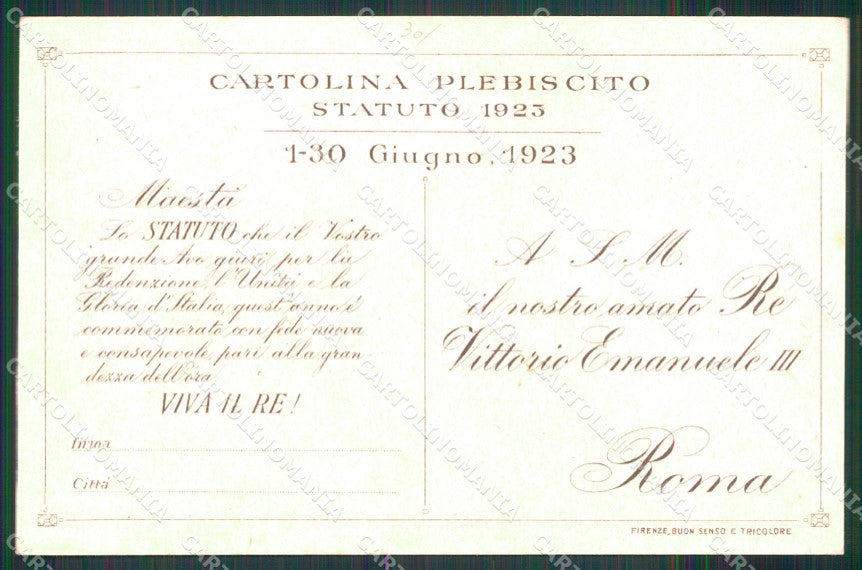 30/
CARTOLINA PLEBISCITO
STATUTO 1923
1-30 Giugno, 1923
Maestà
Lo STATUTO che il Vostro
grande Avo giurò per la
Redenzione, l'Unità e la
Gloria d'Italia, quest'anno è
commemorato con fede nuova
e consapevole, pari alla gran
dezza dell'ora.
VIVA IL RE!
Firma
Città
A S. M.
il nostro amato Re
Vittorio Emanuele III
Roma
FIRENZE, BUON SENSO E TRICOLORE
CARTOLINOMANIA